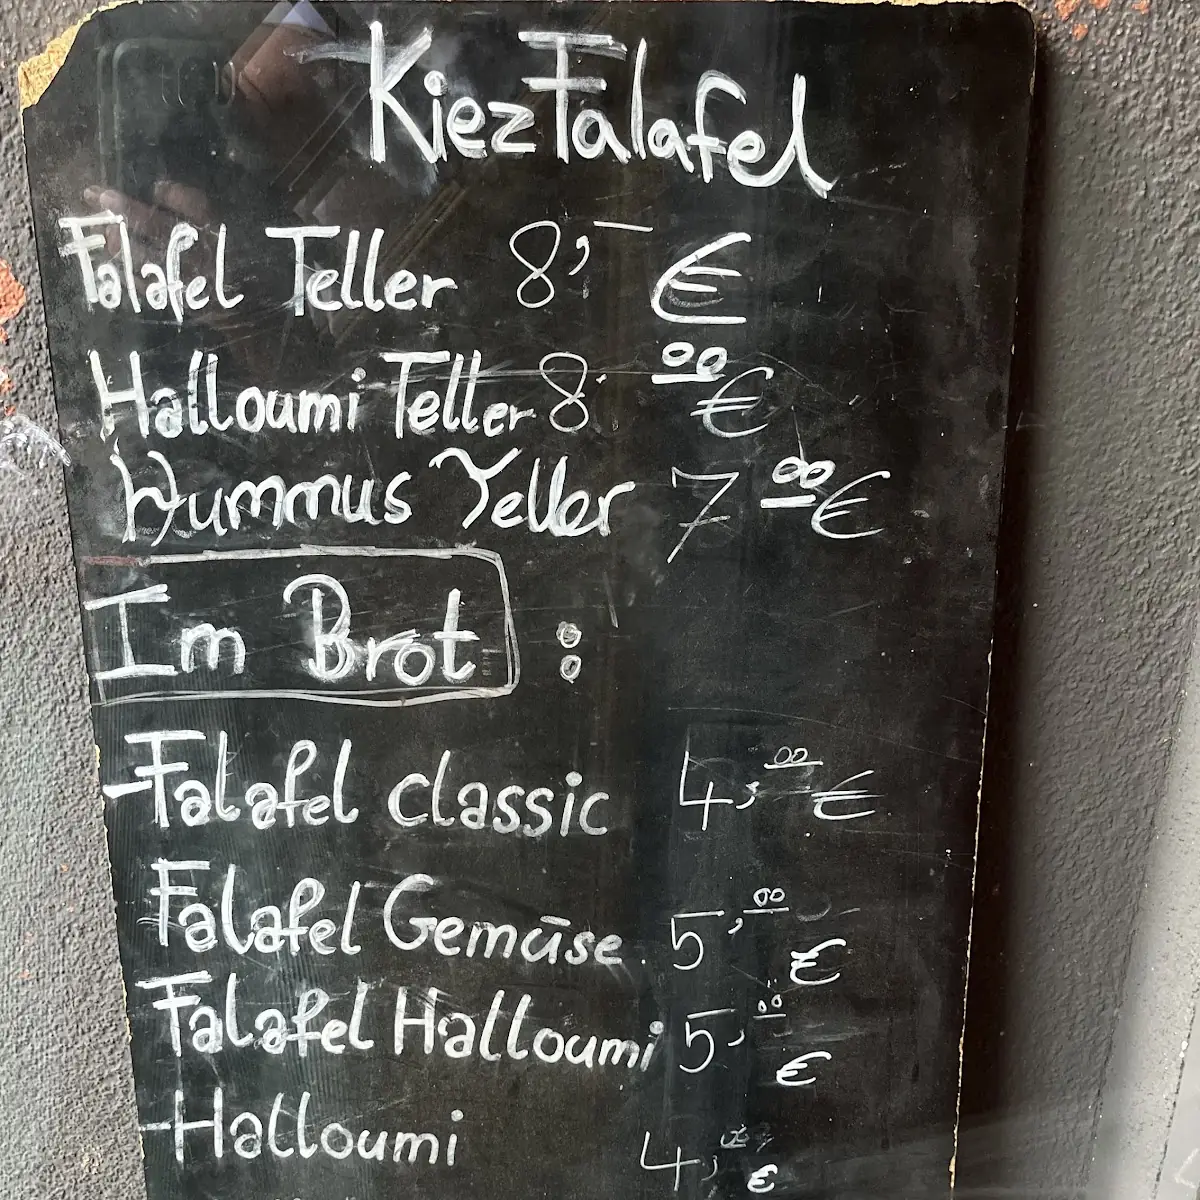 KiezFalafel
Falafel Teller 8,- €
Halloumi Teller 8 00 €
Hummus Teller 7 00 €
Im Brot :
Falafel classic 4,00 €
Falafel Gemüse 5,00 €
Falafel Halloumi 5,00 €
Halloumi 4,00 €